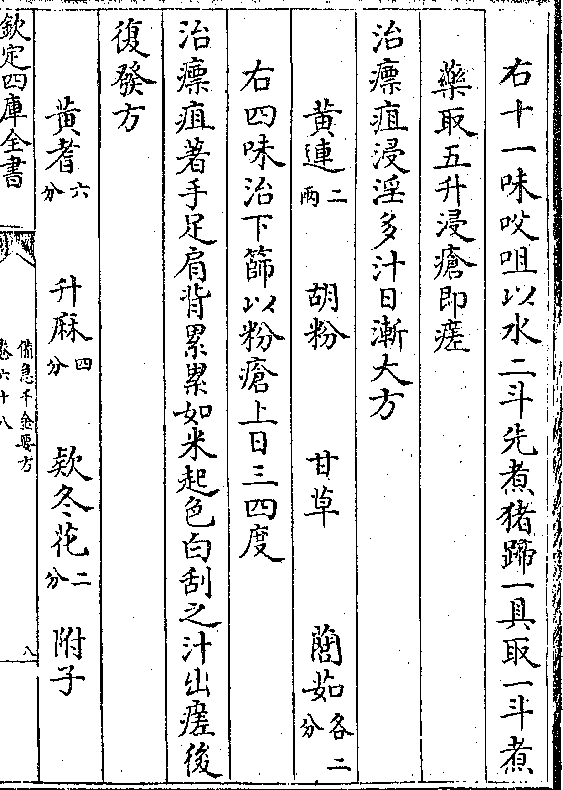 右十一味㕮咀以水二斗先煮猪蹄一具取一斗煮
藥取五升浸瘡即瘥
治瘭疽浸淫多汁日漸大方
黄連二两 胡粉 甘草 䕡茹各二分
右四味治下篩以粉瘡上日三四度
治瘭疽著手足肩背累累如米起色白刮之汁出瘥後
復發方
黄耆六分 升麻四分 欵冬花二分 附子
欽定四庫全書
備急千金要方
卷六十八
八